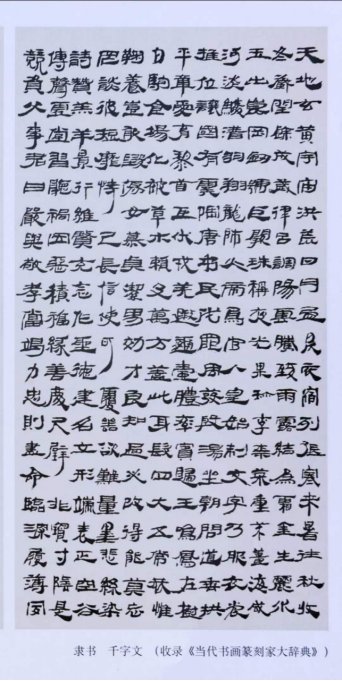 天地玄黃宇宙洪荒日月盈昃辰宿列張寒來暑往秋收
冬藏閏餘成歲律呂調陽雲騰致雨露結為霜金生麗水
玉出崑岡劍號巨闕珠稱夜光果珍李柰菜重芥薑海鹹
河淡鱗潛羽翔龍師火帝鳥官人皇始制文字乃服衣裳
推位讓國有虞陶唐弔民伐罪周發殷湯坐朝問道垂拱
平章愛育黎首臣伏戎羌遐邇壹體率賓歸王鳴鳳在樹
白駒食場化被草木賴及萬方蓋此身髮四大五常恭惟
鞠養豈敢毀傷女慕貞潔男效才良知過必改得能莫忘
罔談彼短靡恃己長信使可覆器欲難量墨悲絲染
詩讚羔羊景行維賢克念作聖德建名立形端表正空谷
傳聲虛堂習聽禍因惡積福緣善慶尺璧非寶寸陰是
競資父事君曰嚴與敬孝當竭力忠則盡命臨深履薄夙
隶书 千字文 (收录《当代书画篆刻家大辞典》)